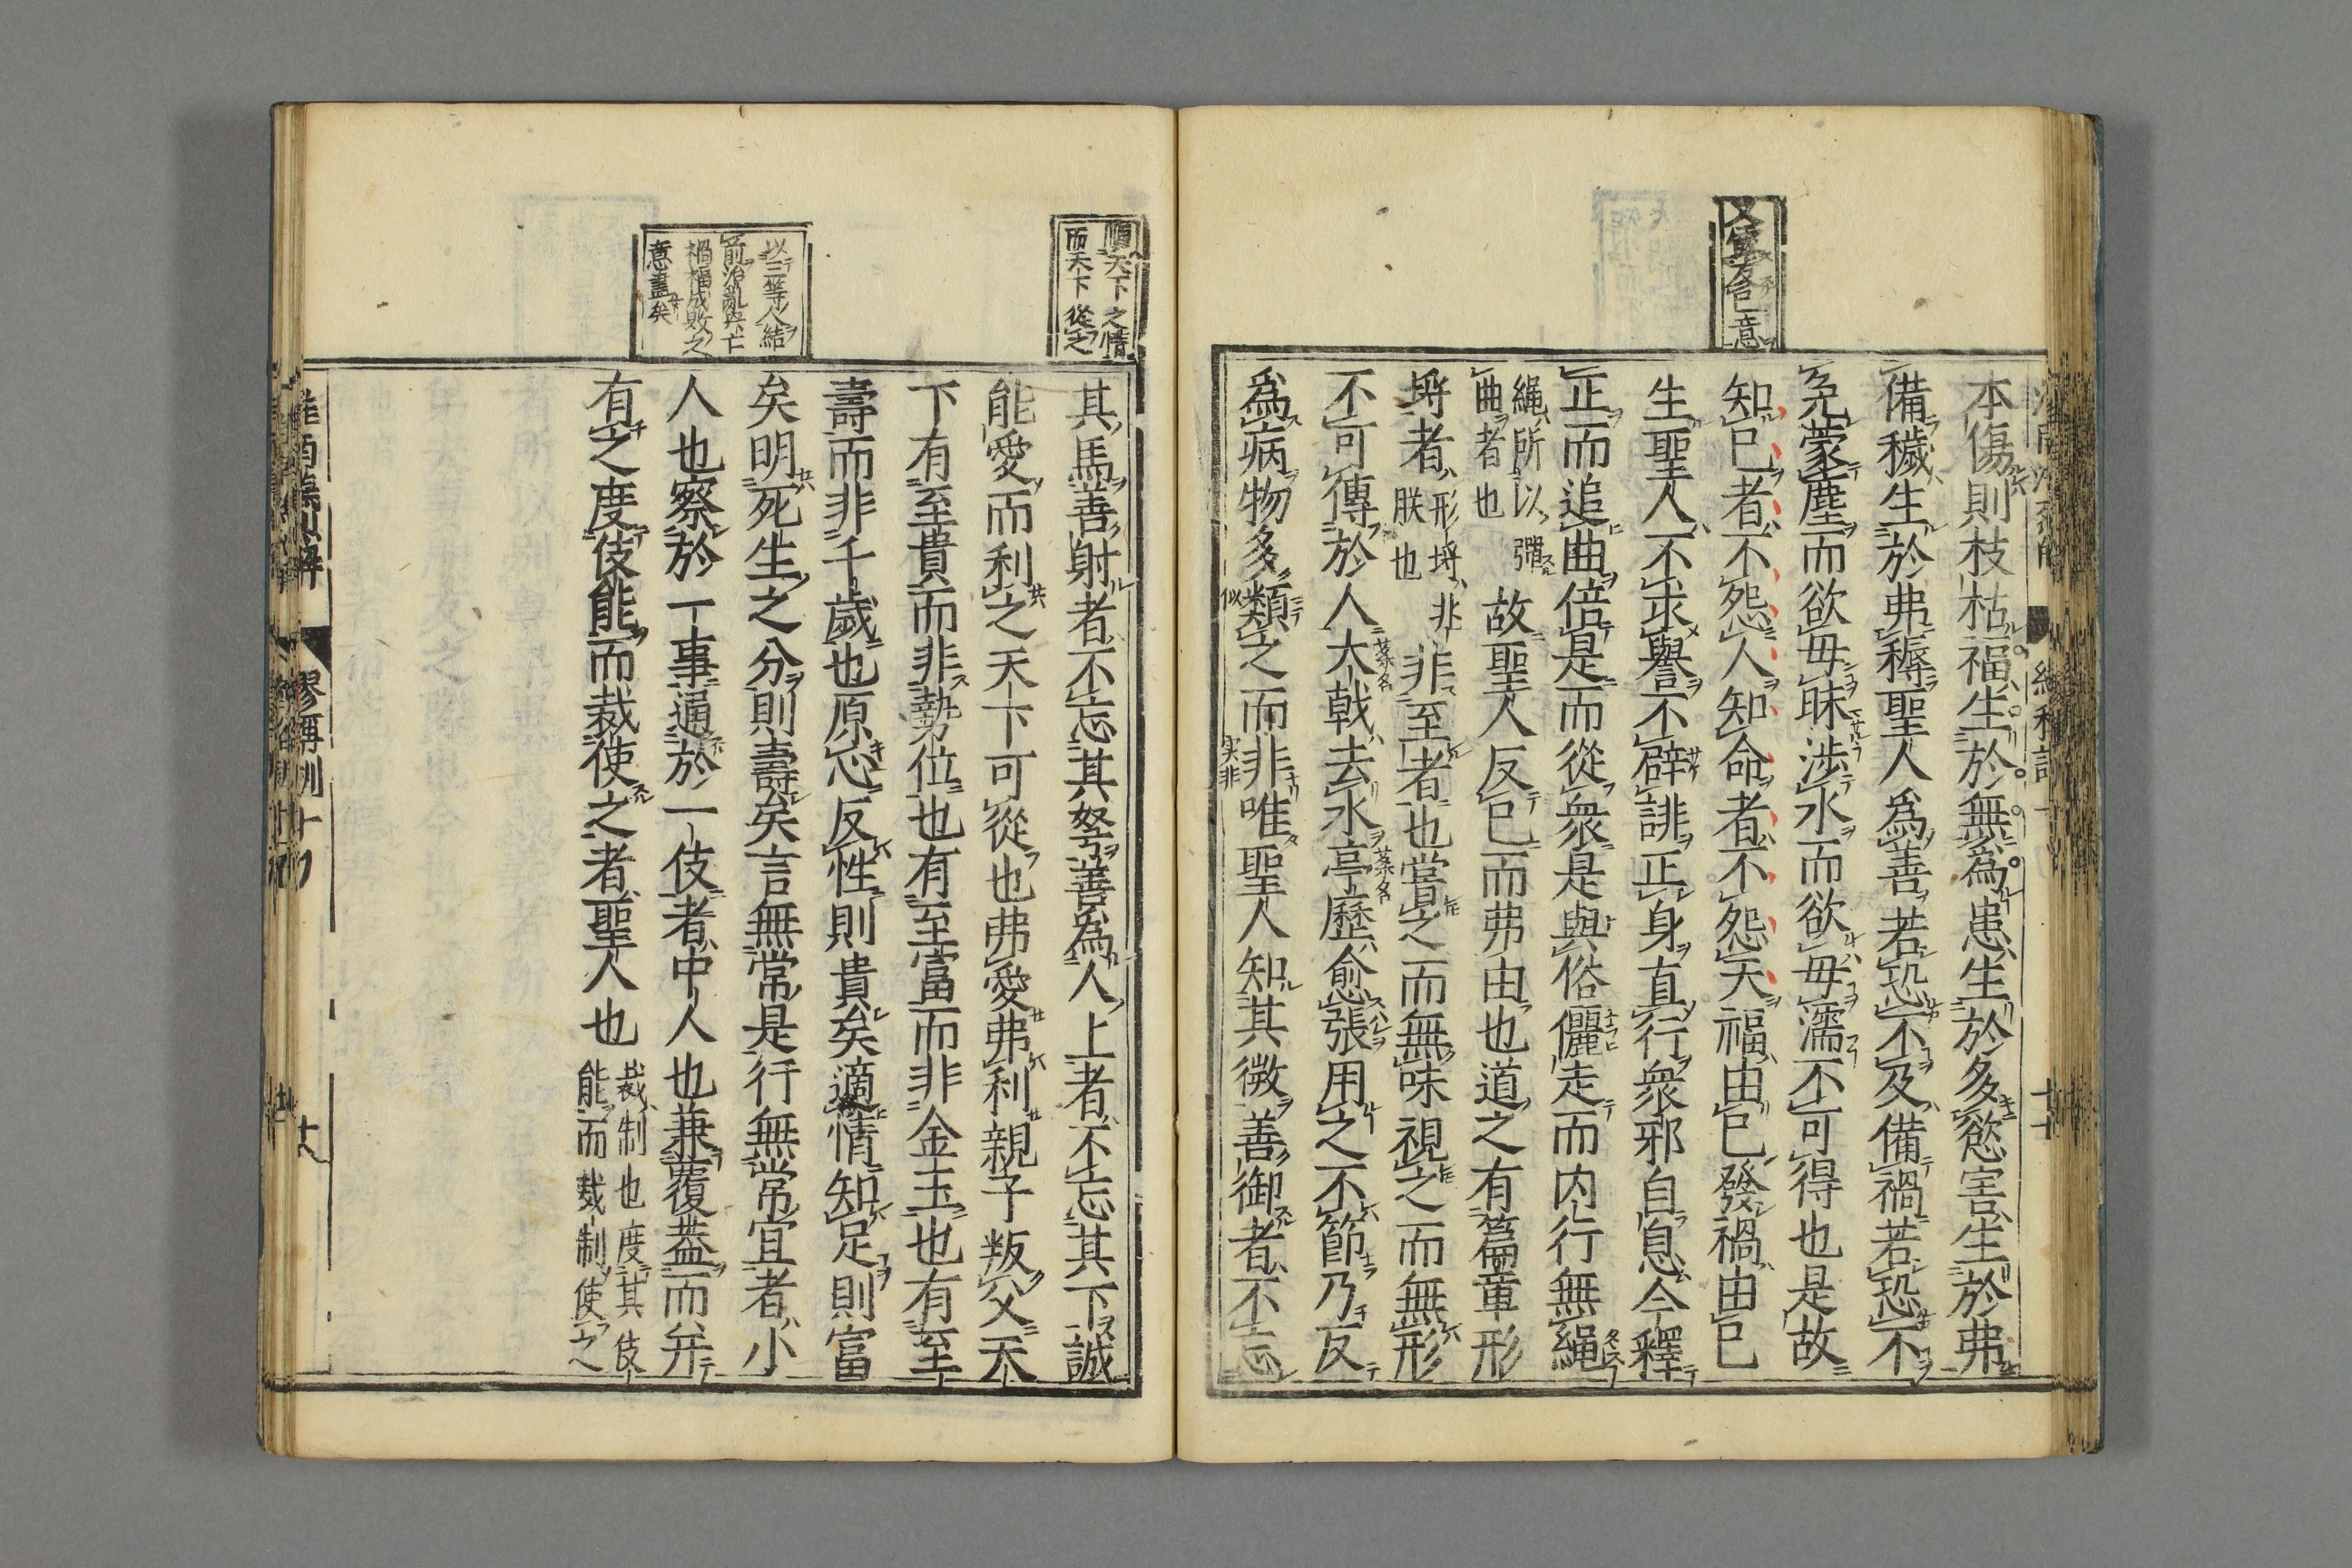 本傷則枝枯福生於無爲患生於多慾害生於弗
備穢生於弗耨聖人爲善若恐不及備禍若恐不
免蒙塵而欲毋眯涉水而欲毋濡不可得也是故
知己者不怨人知命者不怨天福由己發禍由己
生聖人不求譽不辟誹正身直行衆邪自息今釋
正而追曲倍是而從衆是與俗儷走而内行無繩
繩所以彈
曲者也
故聖人反己而弗由也道之有篇章形
埒者
形埒非
朕也
非至者也嘗之而無味視之而無形
不可傳於人大戟去水亭歷愈張用之不節乃反
爲病物多類之而非唯聖人知其微善御者不忘
順天下之情
而天下從之
其馬善射者不忘其弩善爲人上者不忘其下誠
能愛而利之天下可從也弗愛弗利親子叛父天
下有至貴而非勢位也有至富而非金玉也有至
壽而非千歲也原心反性則貴矣適情知足則富
矣明死生之分則壽矣言無常是行無常宜者小
人也察於一事通於一伎者中人也兼覆蓋而并
有之度伎能而裁使之者聖人也
裁制也度其伎
能而裁制使之
以三等人結
前治亂興亡
禍福成敗之
意盡矣
繆稱訓十